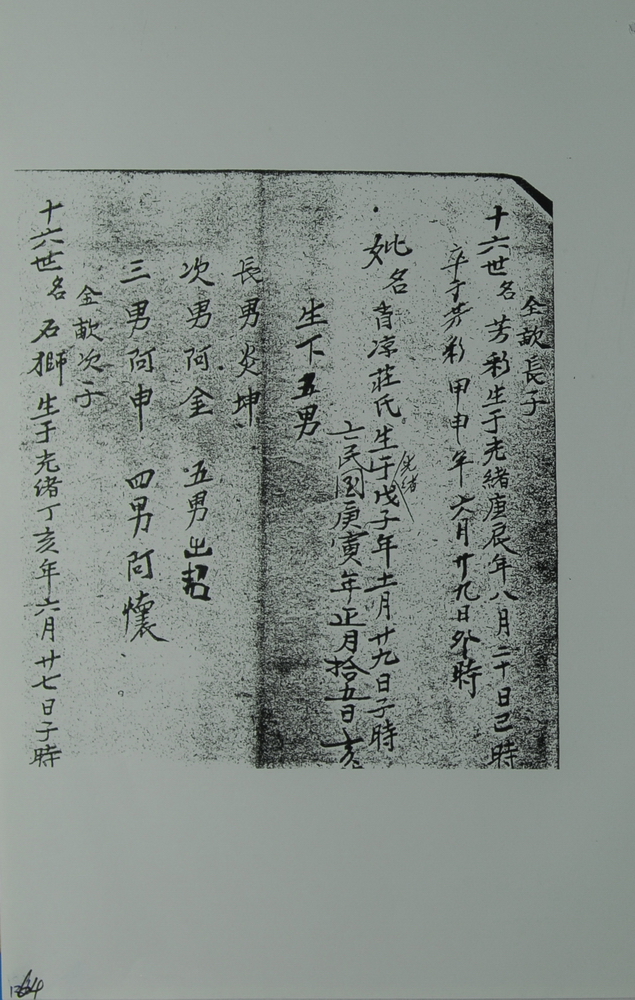 金歃長子
十六世名芳彩生于光緒庚辰年八月二十日巳時
卒于芳彩甲申年六月廿九日卯時
妣名育凉莊氏生于光緒戊子年十一月廿九日子時
亡民國庚寅年正月拾五日亥
生下五男
長男炎坤
次男阿金 五男出招
三男阿申 四男阿懷
金歃次子
十六世名石獅生于光緒丁亥年六月廿七日子時